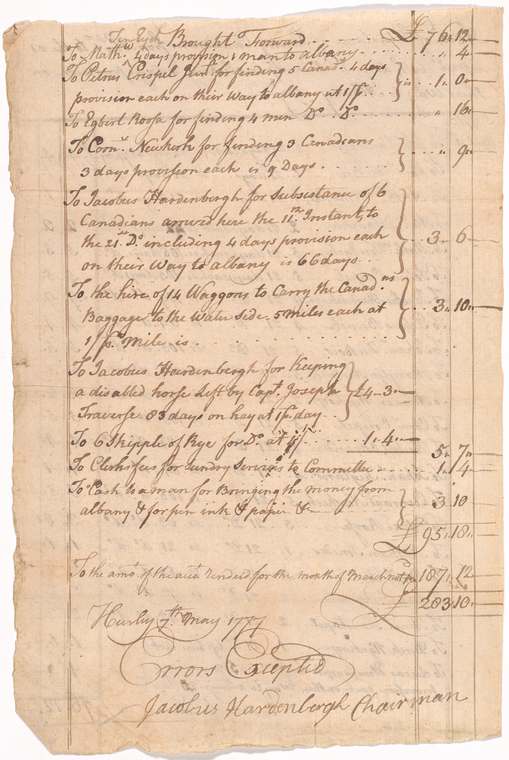 Ten Eyck Brought Forward £ 76 12
To Nath.w 4 days provision 1 man to albany " 4
To Petrus Crispel Junr for finding 5 Canad.s 4 days
provision each on their way to albany at 1/ is 1 0
To Egbert Roosa for finding 4 men Do Do " 16
To Corn.s Newkerk for finding 3 Canadians
3 days provision each is 9 Days " 9
To Jacobus Hardenbergh for Subsistance of 6
Canadians arrived here the 11th Instant, to
the 21st Do including 4 days provision each
on their Way to albany is 66 days 3 6
To the hire of 14 Waggons to Carry the Canad.ns
Baggage to the Water Side 5 miles each at
1/ pr Mile is 3 10
To Jacobus Hardenbergh for Keeping
a disabled horse left by Capt Joseph
Traverse 83 days on hay at 1/ pr day £4 3
To 6 Skipple of Rye for Do at 4/ 1 4
5 7
To Clerks fees for Sundry Services to Committee 1 4
To Cash to a man for Bringing the money from
albany & for pen ink & paper &c 3 10
£ 95 18
To the amt of the acct rendered for the month of March 187 12
£ 283 10
Hurley 7th May 1777
Errors Excepted
Jacobus Hardenbergh Chairman